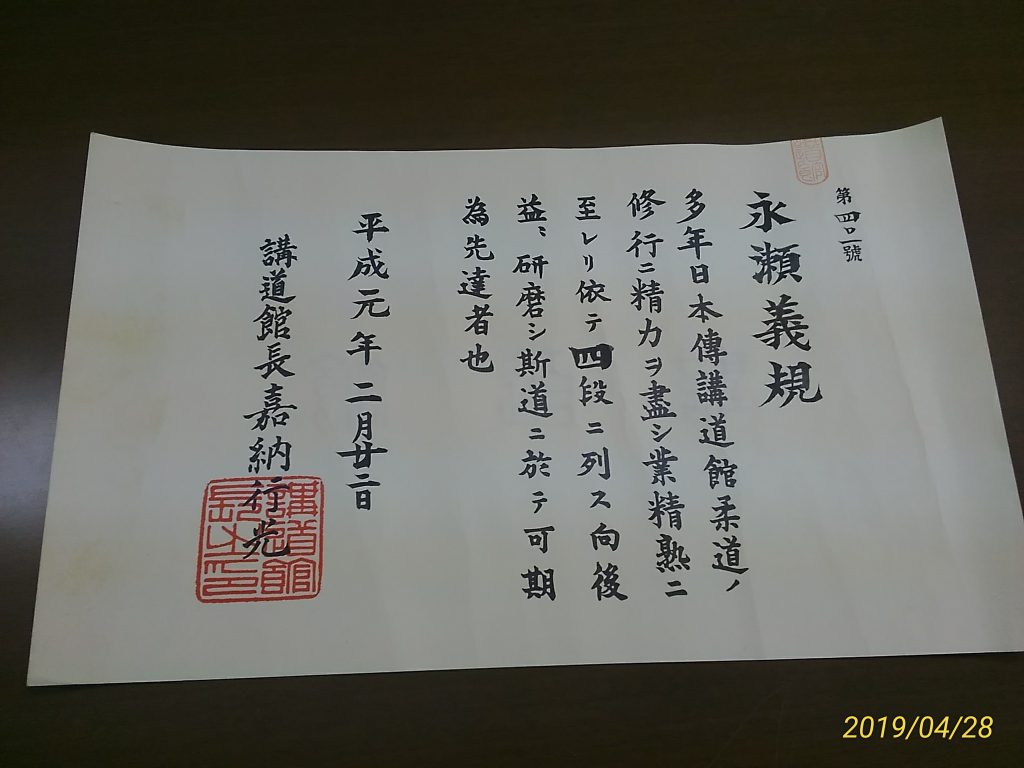 第四〇一號
永瀬義規
多年日本傳講道館柔道ノ
修行ニ精力ヲ盡シ業精熟ニ
至レリ依テ四段ニ列ス向後
益〻研磨シ斯道ニ於テ可期
為先達者也
平成元年二月廿二日
講道館長嘉納行光
講道館長之印
2019/04/28